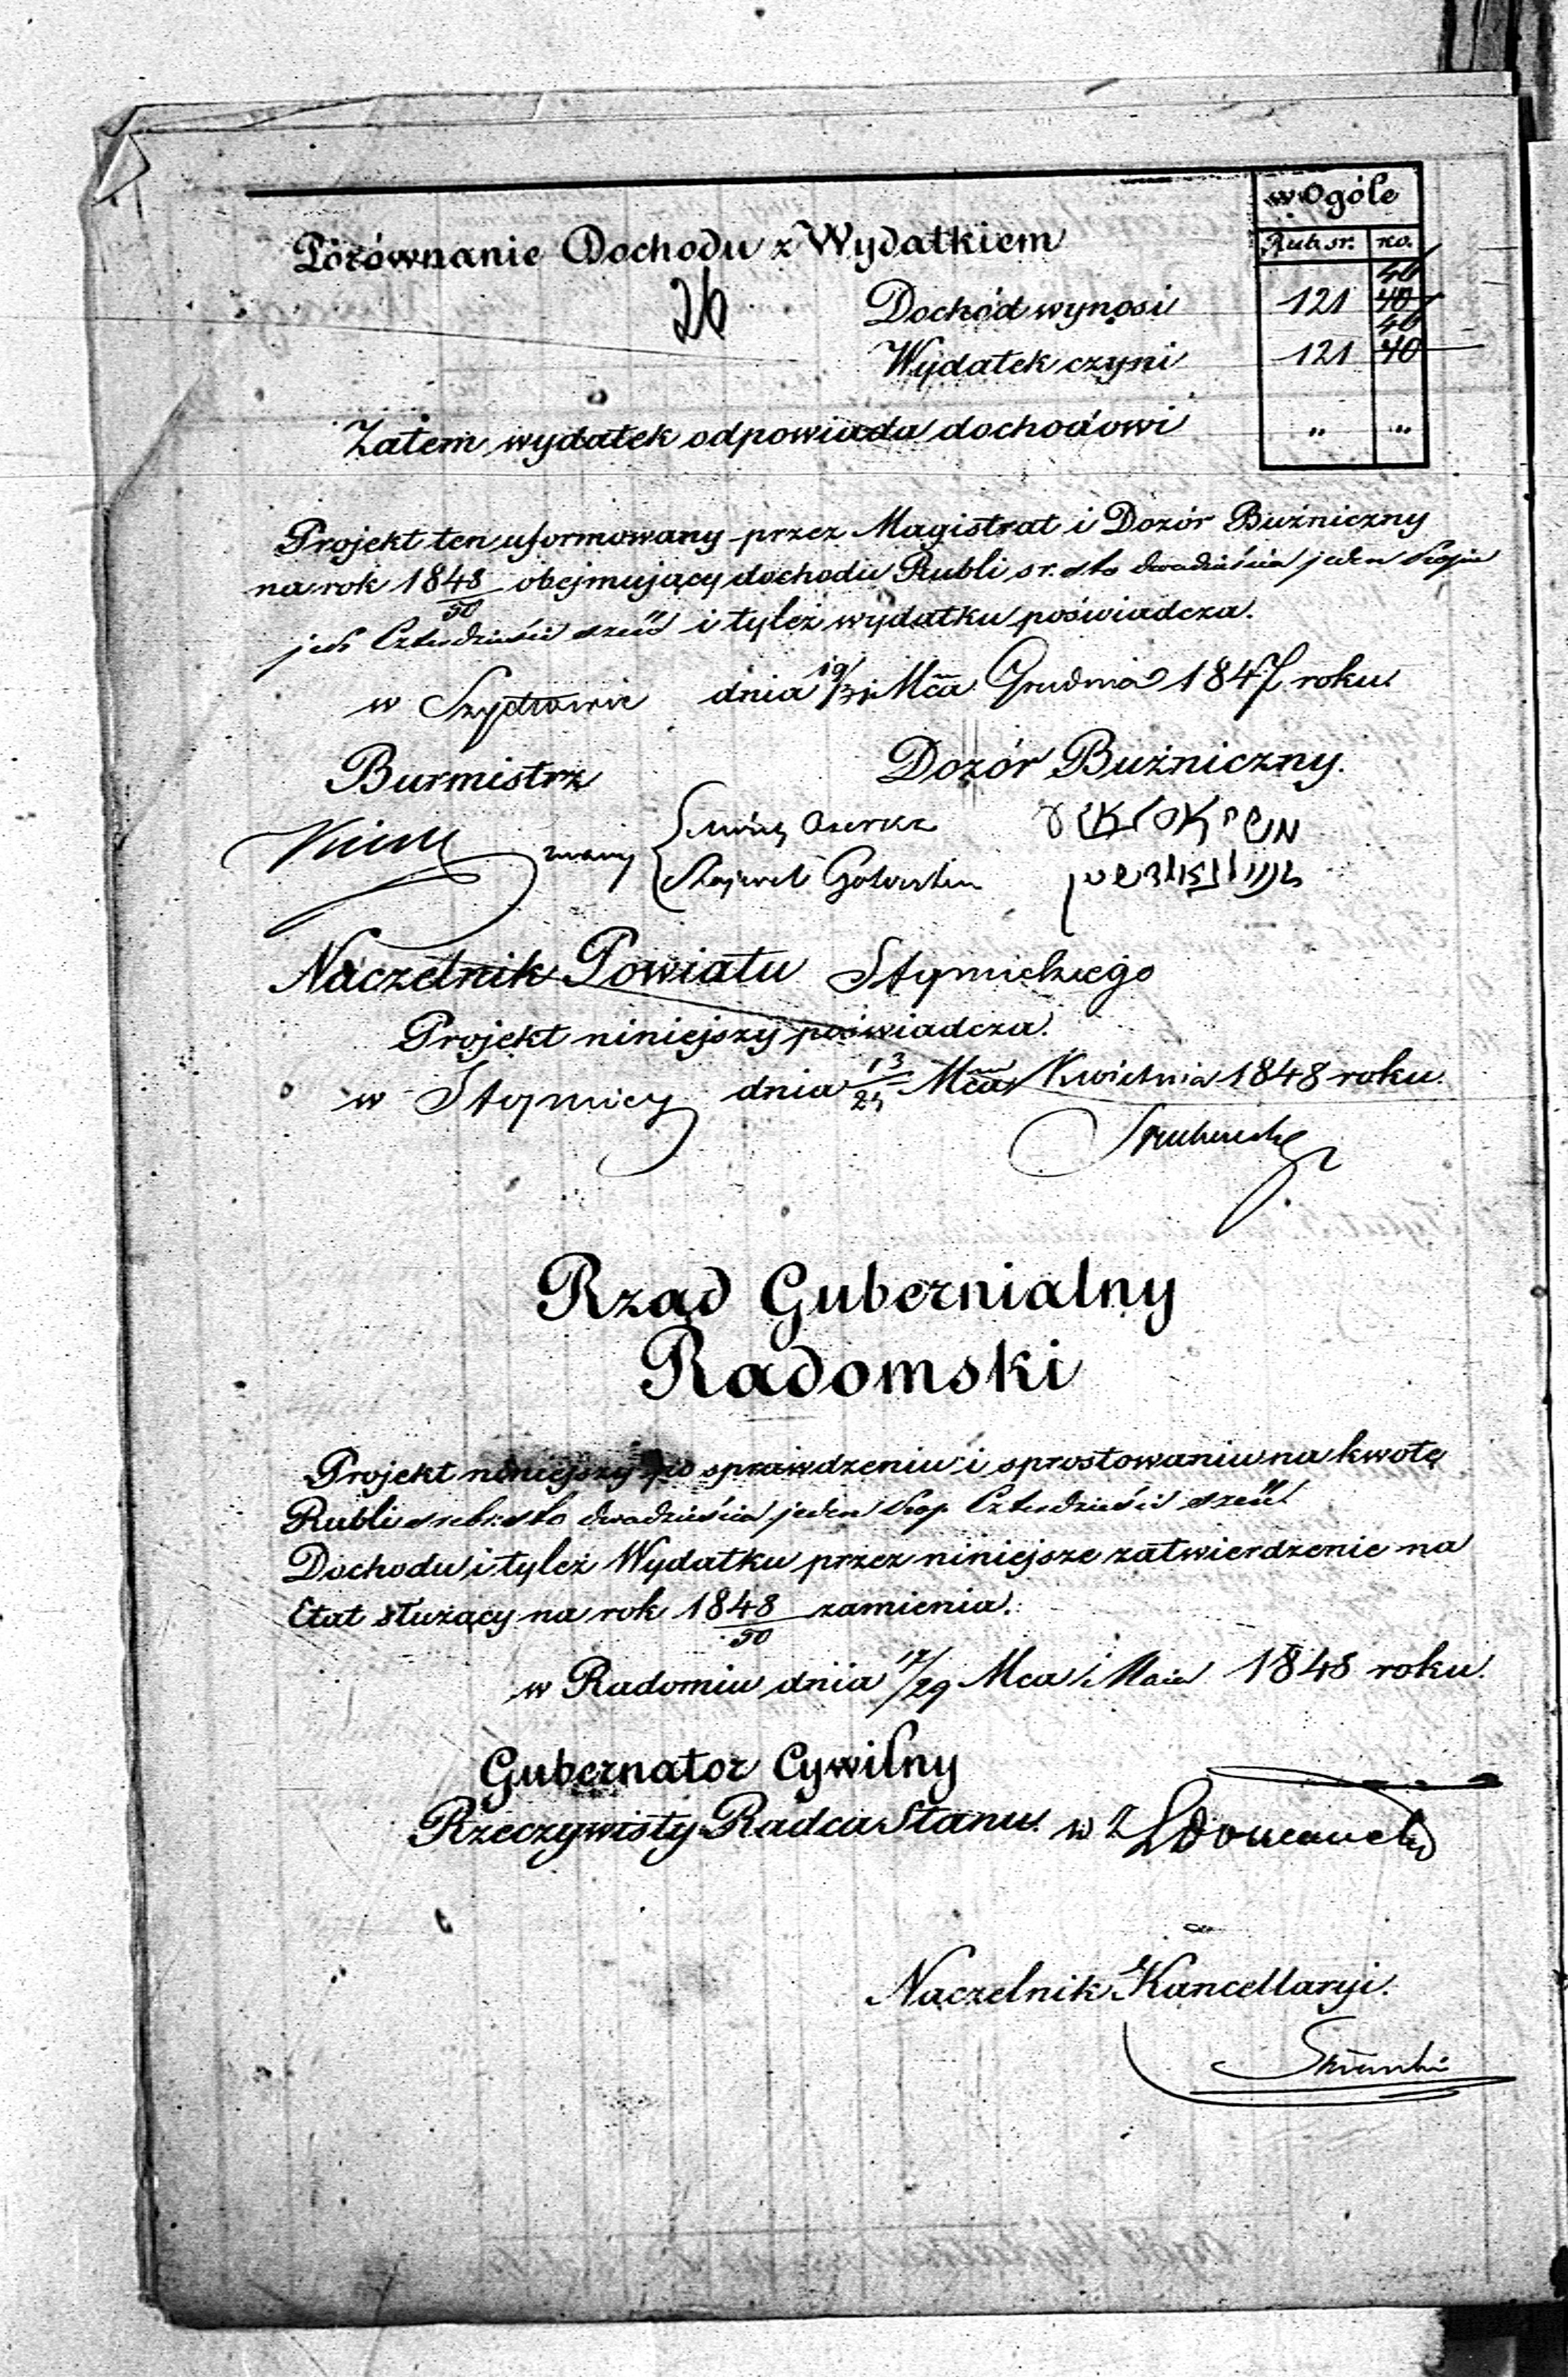 w Ogóle
Rub. sr. ko.
Porównanie Dochodu z Wydatkiem
26
46
Dochód wynosi 121 40
46
Wydatek czyni 121 40
Zatem wydatek odpowiada dochodowi „ „
Projekt ten uformowany przez Magistrat i Dozór Bużniczny
na rok 1848/50 obejmujący dochodu Rubli sr. sto dwadzieścia jeden
Czterdzieści sześć i tyleż wydatku poświadcza.
w Szydłowie dnia 19/31 Mca Grudnia 1847 roku.
Burmistrz Dozór Bużniczny.
Naczelnik Powiatu Stopnickiego
Projekt niniejszy poświadcza.
w Stopnicy dnia 13/25 Mca Kwietnia 1848 roku.
Rząd Gubernialny
Radomski
Projekt niniejszy po sprawdzeniu i sprostowaniu na kwotę
Rubli srebr. sto dwadzieścia jeden kop. Czterdzieści sześć
Dochodu i tyleż Wydatku przez niniejsze zatwierdzenie na
Etat służący na rok 1848/50 zamienia.
w Radomiu dnia 17/29 Mca Maia 1848 roku.
Gubernator Cywilny
Rzeczywisty Radca Stanu. w z
Naczelnik Kancellaryi.